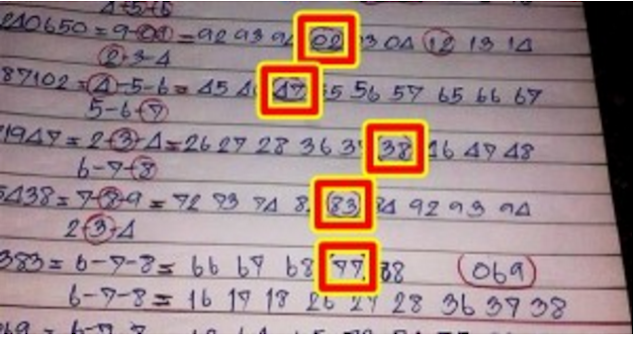 4-5-6
240650 = 9-01 = 92 93 94 02 03 04 12 13 14
2-3-4
87102 = 4-5-6 = 45 46 47 55 56 57 65 66 67
5-6-7
1947 = 2-3-4 = 26 27 28 36 37 38 46 47 48
6-7-8
5438 = 7-8-9 = 72 73 74 82 83 84 92 93 94
2-3-4
383 = 6-7-8 = 66 67 68 77 88 069
6-7-8 = 16 17 18 26 27 28 36 37 38